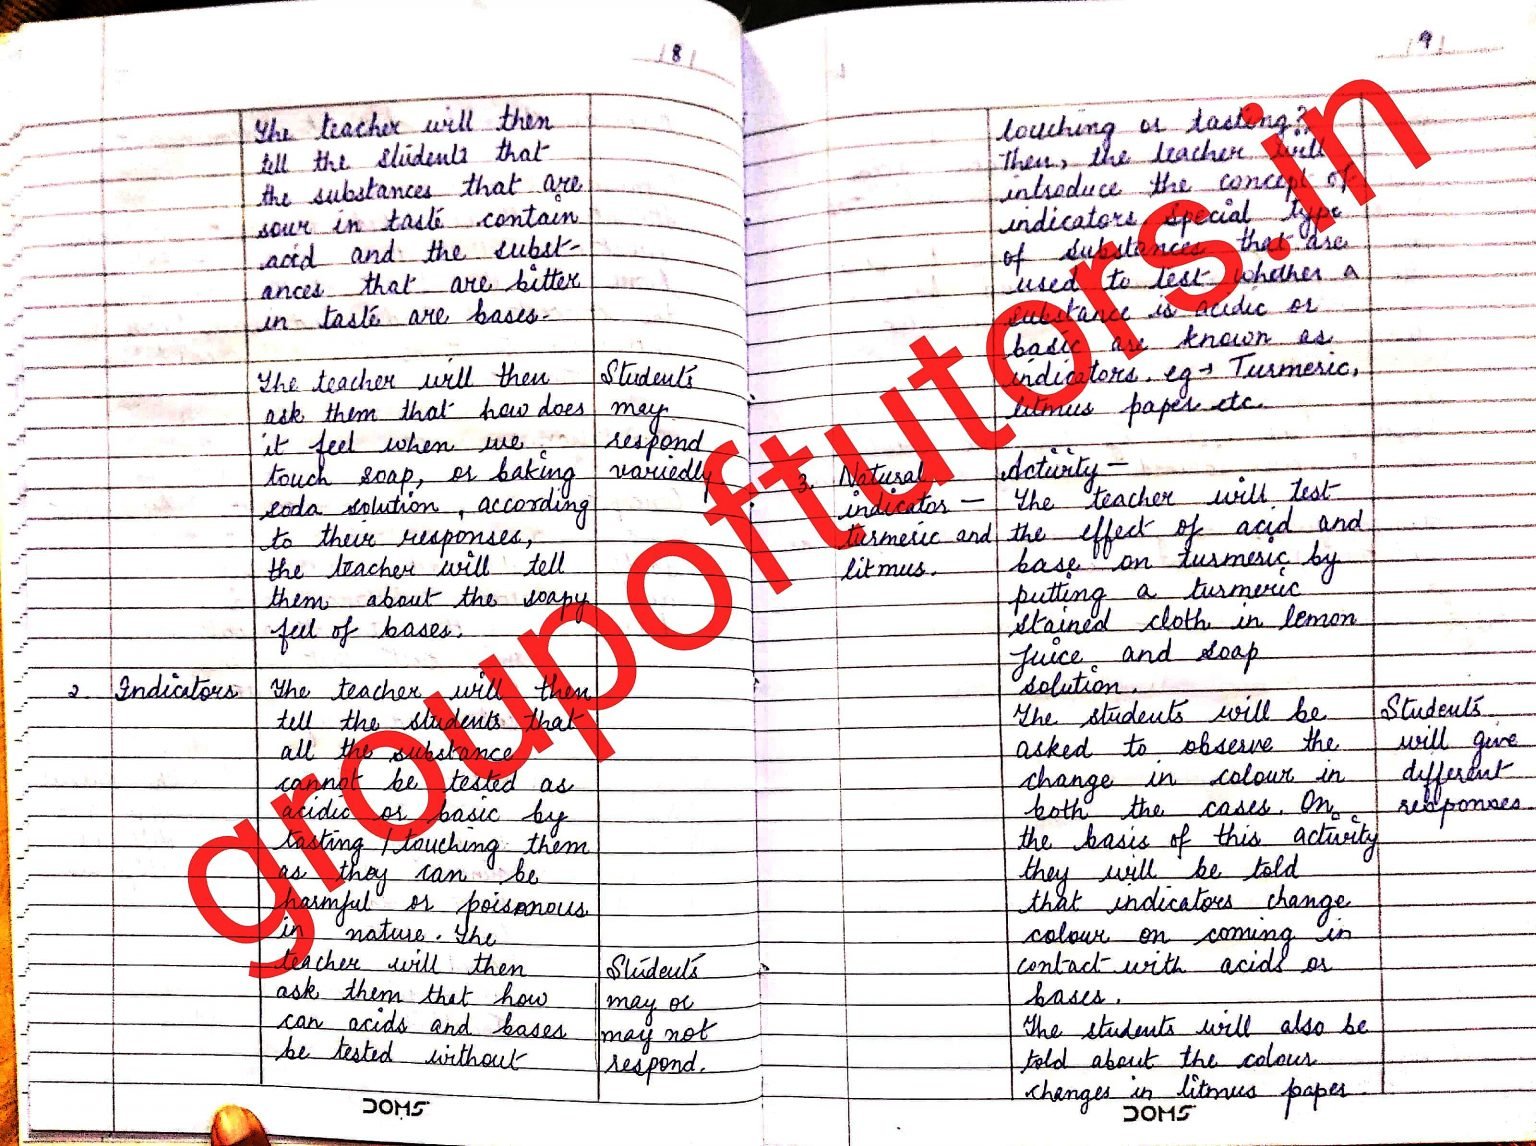 8
The teacher will then
tell the students that
the substances that are
sour in taste contain
acid and the subst-
ances that are bitter
in taste are bases.
The teacher will then
ask them that how does
it feel when we
touch soap, or baking
soda solution, according
to their responses,
the teacher will tell
them about the soapy
feel of bases.
Students
may
respond
variedly
2. Indicators
The teacher will then
tell the students that
all the substance
cannot be tested as
acidic or basic by
tasting / touching them
as they can be
harmful or poisonous
in nature. The
teacher will then
ask them that how
can acids and bases
be tested without
Students
may or
may not
respond.
DOMS
9
touching or tasting?
Then, the teacher will
introduce the concept of
indicators special type
of substances that are
used to test whether a
substance is acidic or
basic are known as
indicators. eg → Turmeric,
litmus paper etc.
3. Natural
indicator —
turmeric and
litmus.
Activity —
The teacher will test
the effect of acid and
base on turmeric by
putting a turmeric
stained cloth in lemon
juice and soap
solution.
The students will be
asked to observe the
change in colour in
both the cases. On
the basis of this activity
they will be told
that indicators change
colour on coming in
contact with acids or
bases.
The students will also be
told about the colour
changes in litmus paper.
Students
will give
different
responses
DOMS
groupoftutors.in